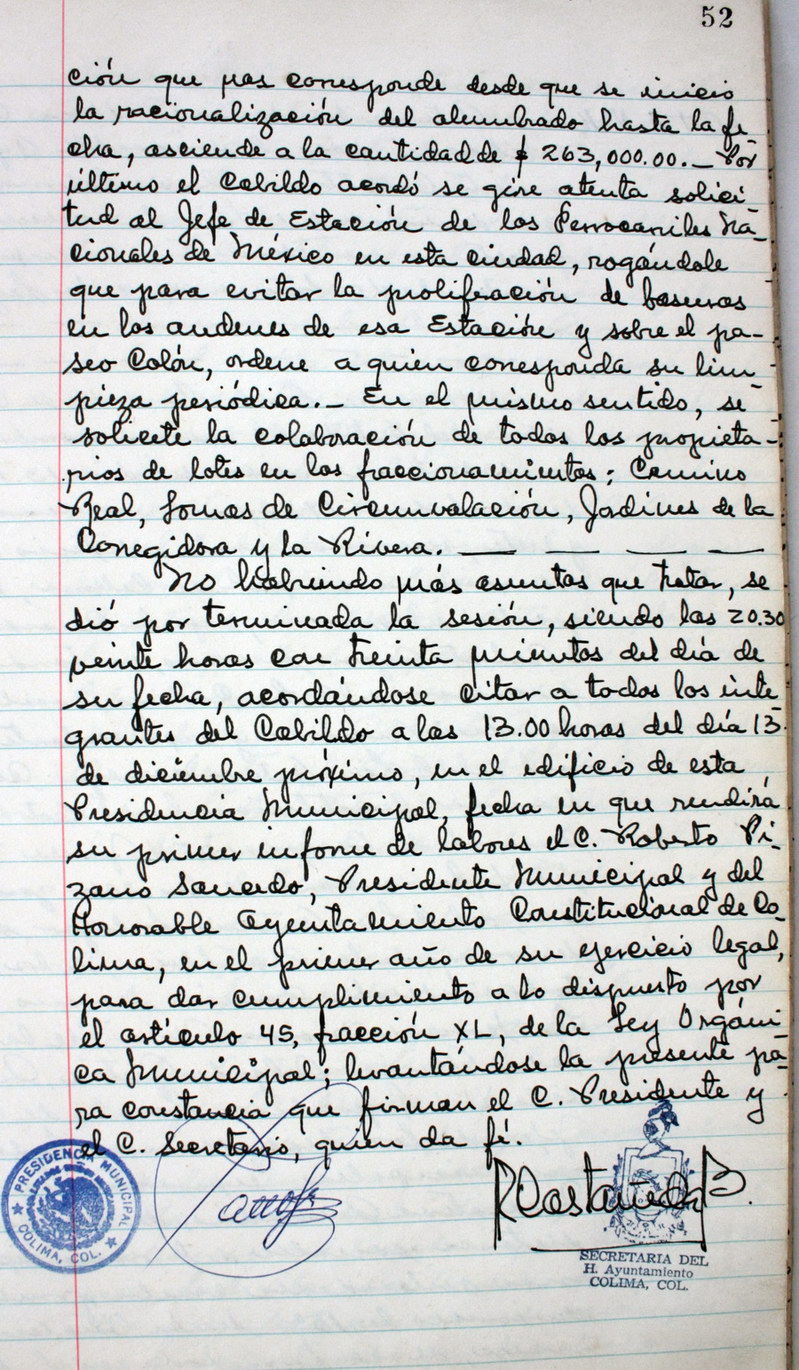 52
ción que nos corresponde desde que se inicio
la racionalización del alumbrado hasta la fe
cha, asciende a la cantidad de $ 263,000.00.- Por
último el Cabildo acordó se gire atenta solici-
tud al Jefe de Estación de los Ferrocarriles Na-
cionales de México en esta ciudad, rogándole
que para evitar la proliferación de basuras
en los andenes de esa Estación y sobre el pa-
seo Colón, ordene a quien corresponda su lim-
pieza periódica.- En el mismo sentido, se
solicite la colaboración de todos los propieta-
rios de lotes en los fraccionamientos: Camino
Real, Lomas de Circunvalación, Jardines de la
Corregidora y la Rivera. — — — —
No habiendo más asuntos que tratar, se
dió por terminada la sesión, siendo las 20.30
veinte horas con treinta minutos del día de
su fecha, acordándose citar a todos los inte
grantes del Cabildo a las 13.00 horas del día 13
de diciembre próximo, en el edificio de esta
Presidencia Municipal, fecha en que rendirá
su primer informe de labores el C. Roberto Pi-
zano Saucedo, Presidente Municipal y del
Honorable Ayuntamiento Constitucional de Co-
lima, en el primer año de su ejercicio legal,
para dar cumplimiento a lo dispuesto por
el artículo 45, fracción XL, de la Ley Orgáni-
ca Municipal; levantándose la presente pa-
ra constancia que firman el C. Presidente y
el C. Secretario, quien da fé.
PRESIDENCIA MUNICIPAL
COLIMA, COL.
RCastañeda B.
SECRETARIA DEL
H. Ayuntamiento
COLIMA, COL.